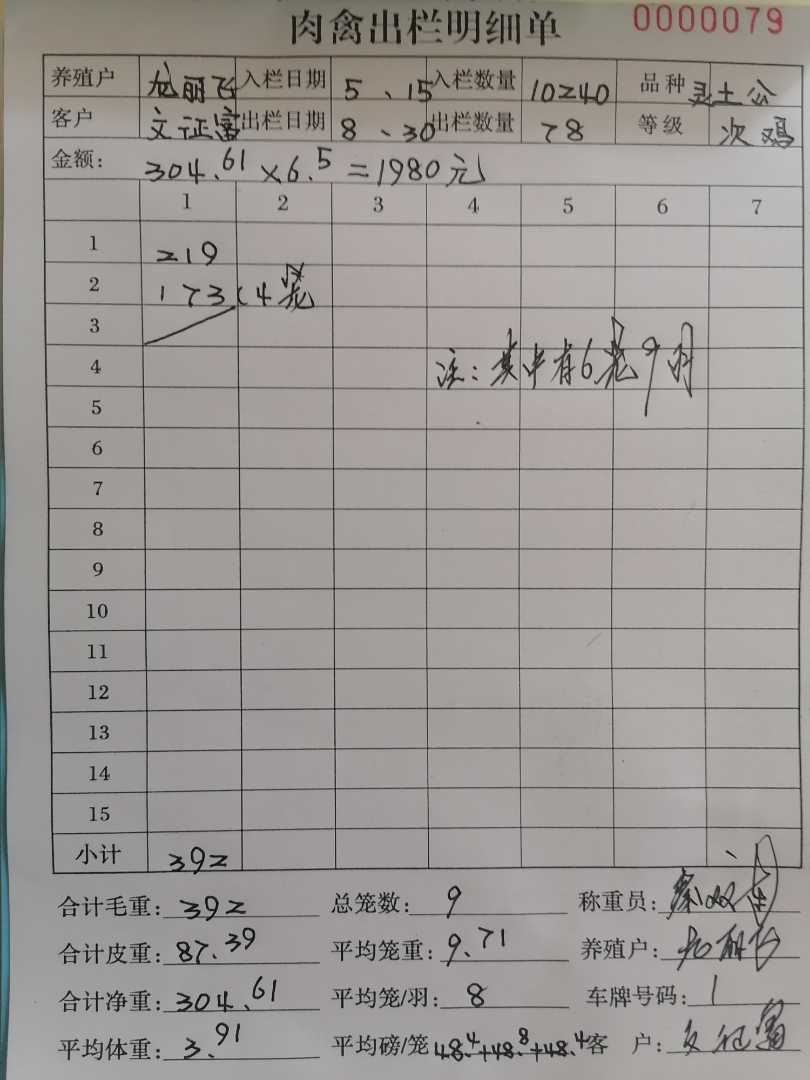 肉禽出栏明细单 0000079
养殖户 龙丽飞 入栏日期 5、15 入栏数量 10240 品种 灵土公
客户 文证富 出栏日期 8、30 出栏数量 78 等级 次鸡
金额: 304.61×6.5=1980元
1 2 3 4 5 6 7
1 219
2 173(4笼
3
4 注:其中有6笼9羽
5
6
7
8
9
10
11
12
13
14
15
小计 392
合计毛重:392 总笼数:9 称重员:
合计皮重:87.39 平均笼重:9.71 养殖户:龙丽飞
合计净重:304.61 平均笼/羽:8 车牌号码:1
平均体重:3.91 平均磅/笼 48.4+48.8+48.4 客 户:文证富